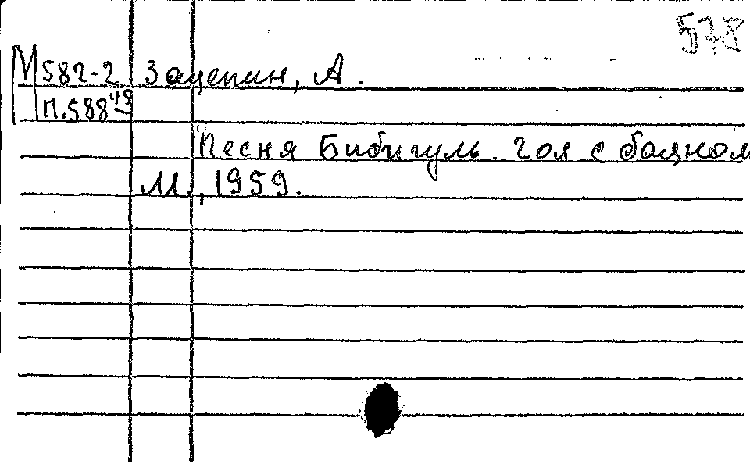 578
М 582-2 Зацепин, А.
П.588 49
Песня Бибигуль. Гол с баяном
М., 1959.